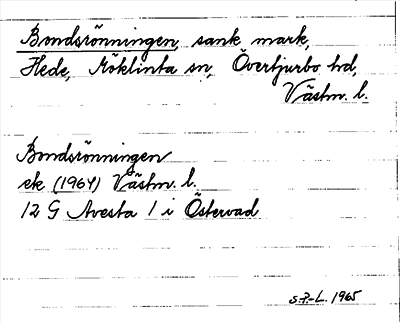 Bondsrönningen, sank mark,
Hede, Möklinta sn, Övertjurbo hd,
Västm. l.
Bondsrönningen
ek (1964) Västm. l.
12 G Avesta 1 i Östervad
S.F-L. 1965